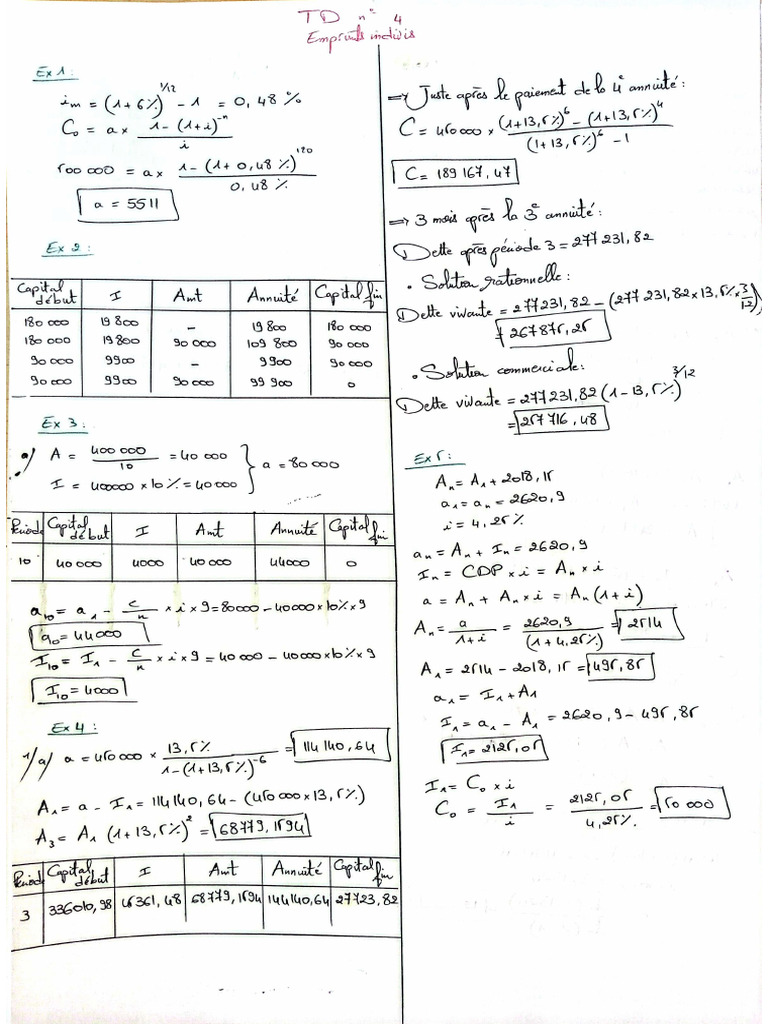 TD n° 4
Emprunts indivis
Ex 1 :
im = (1+6%)^1/12 - 1 = 0,48 %
C₀ = a x (1-(1+i)^-n) / i
500 000 = a x (1-(1+0,48%)^120) / 0,48 %
a = 5511
Ex 2 :
Capital début | I | Amt | Annuité | Capital fin
180 000 | 19 800 | - | 19 800 | 180 000
180 000 | 19800 | 90 000 | 109 800 | 90 000
90 000 | 9900 | - | 9900 | 90 000
90 000 | 9900 | 90 000 | 99 900 | 0
Ex 3 :
a) A = 400 000 / 10 = 40 000
I = 400000 x 10% = 40000
} a = 80 000
Période | Capital début | I | Amt | Annuité | Capital fin
10 | 40 000 | 4000 | 40 000 | 44000 | 0
a₁₀ = a₁ - C/n x i x 9 = 80000 - 40000 x 10% x 9
a₁₀ = 44 000
I₁₀ = I₁ - C/n x i x 9 = 40 000 - 40000 x 10% x 9
I₁₀ = 4000
Ex 4 :
1/a) a = 450 000 x 13,5% / (1-(1+13,5%)^-6) = 114 140,64
A₁ = a - I₁ = 114 140,64 - (450 000 x 13,5%)
A₃ = A₁ (1+13,5%)² = 68779,1594
Période | Capital début | I | Amt | Annuité | Capital fin
3 | 336010,98 | 45361,48 | 68779,1594 | 144140,64 | 27723,82
=> Juste après le paiement de la 4e annuité :
C = 450 000 x ((1+13,5%)^6 - (1+13,5%)^4) / ((1+13,5%)^6 - 1)
C = 189 167,47
=> 3 mois après la 3e annuité :
Dette après période 3 = 277 231,82
• Solution rationnelle :
Dette vivante = 277 231,82 - (277 231,82 x 13,5% x 3/12)
= 267 875,25
• Solution commerciale :
Dette vivante = 277 231,82 (1-13,5%)^3/12
= 257 716,48
Ex 5 :
An = A₁ + 2018,15
a₁ = an = 2620,9
i = 4,25 %
an = An + In = 2620,9
In = CDP x i = An x i
a = An + An x i = An (1+i)
An = a / (1+i) = 2620,9 / (1+4,25%) = 2514
A₁ = 2514 - 2018,15 = 495,85
a₁ = I₁ + A1
I₁ = a₁ - A₁ = 2620,9 - 495,85
I₁ = 2125,05
I₁ = C₀ x i
C₀ = I₁ / i = 2125,05 / 4,25% = 50 000